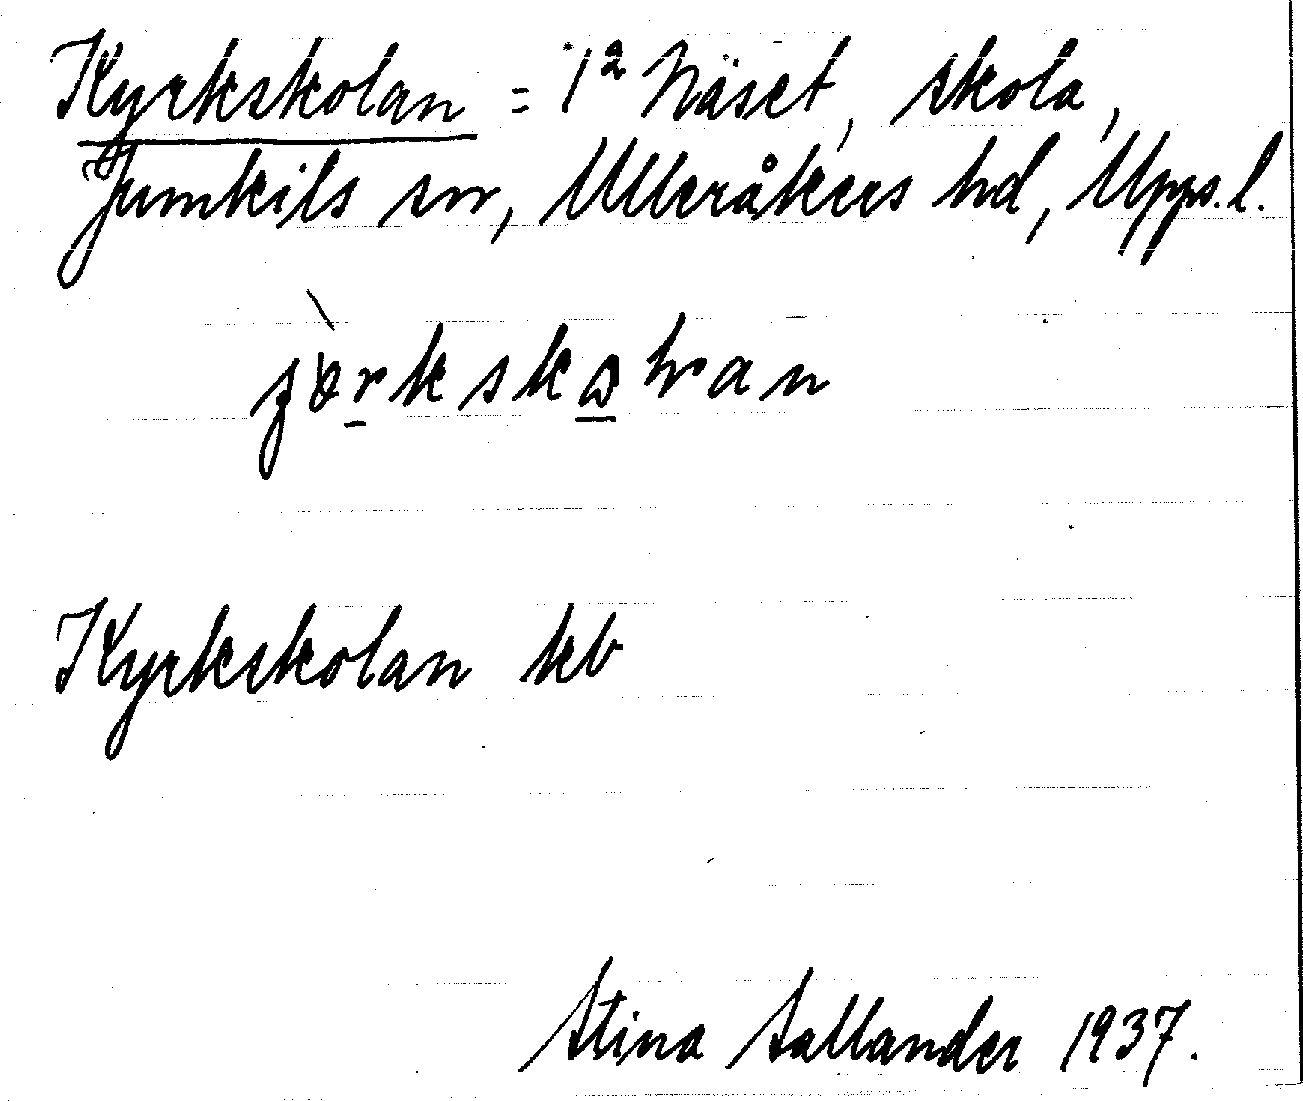 Kyrkskolan = 1² Näset, skola,
Jumkils sn, Ulleråkers hd, Upps. l.
Kyrkskolan kb
Stina Sallander 1937.